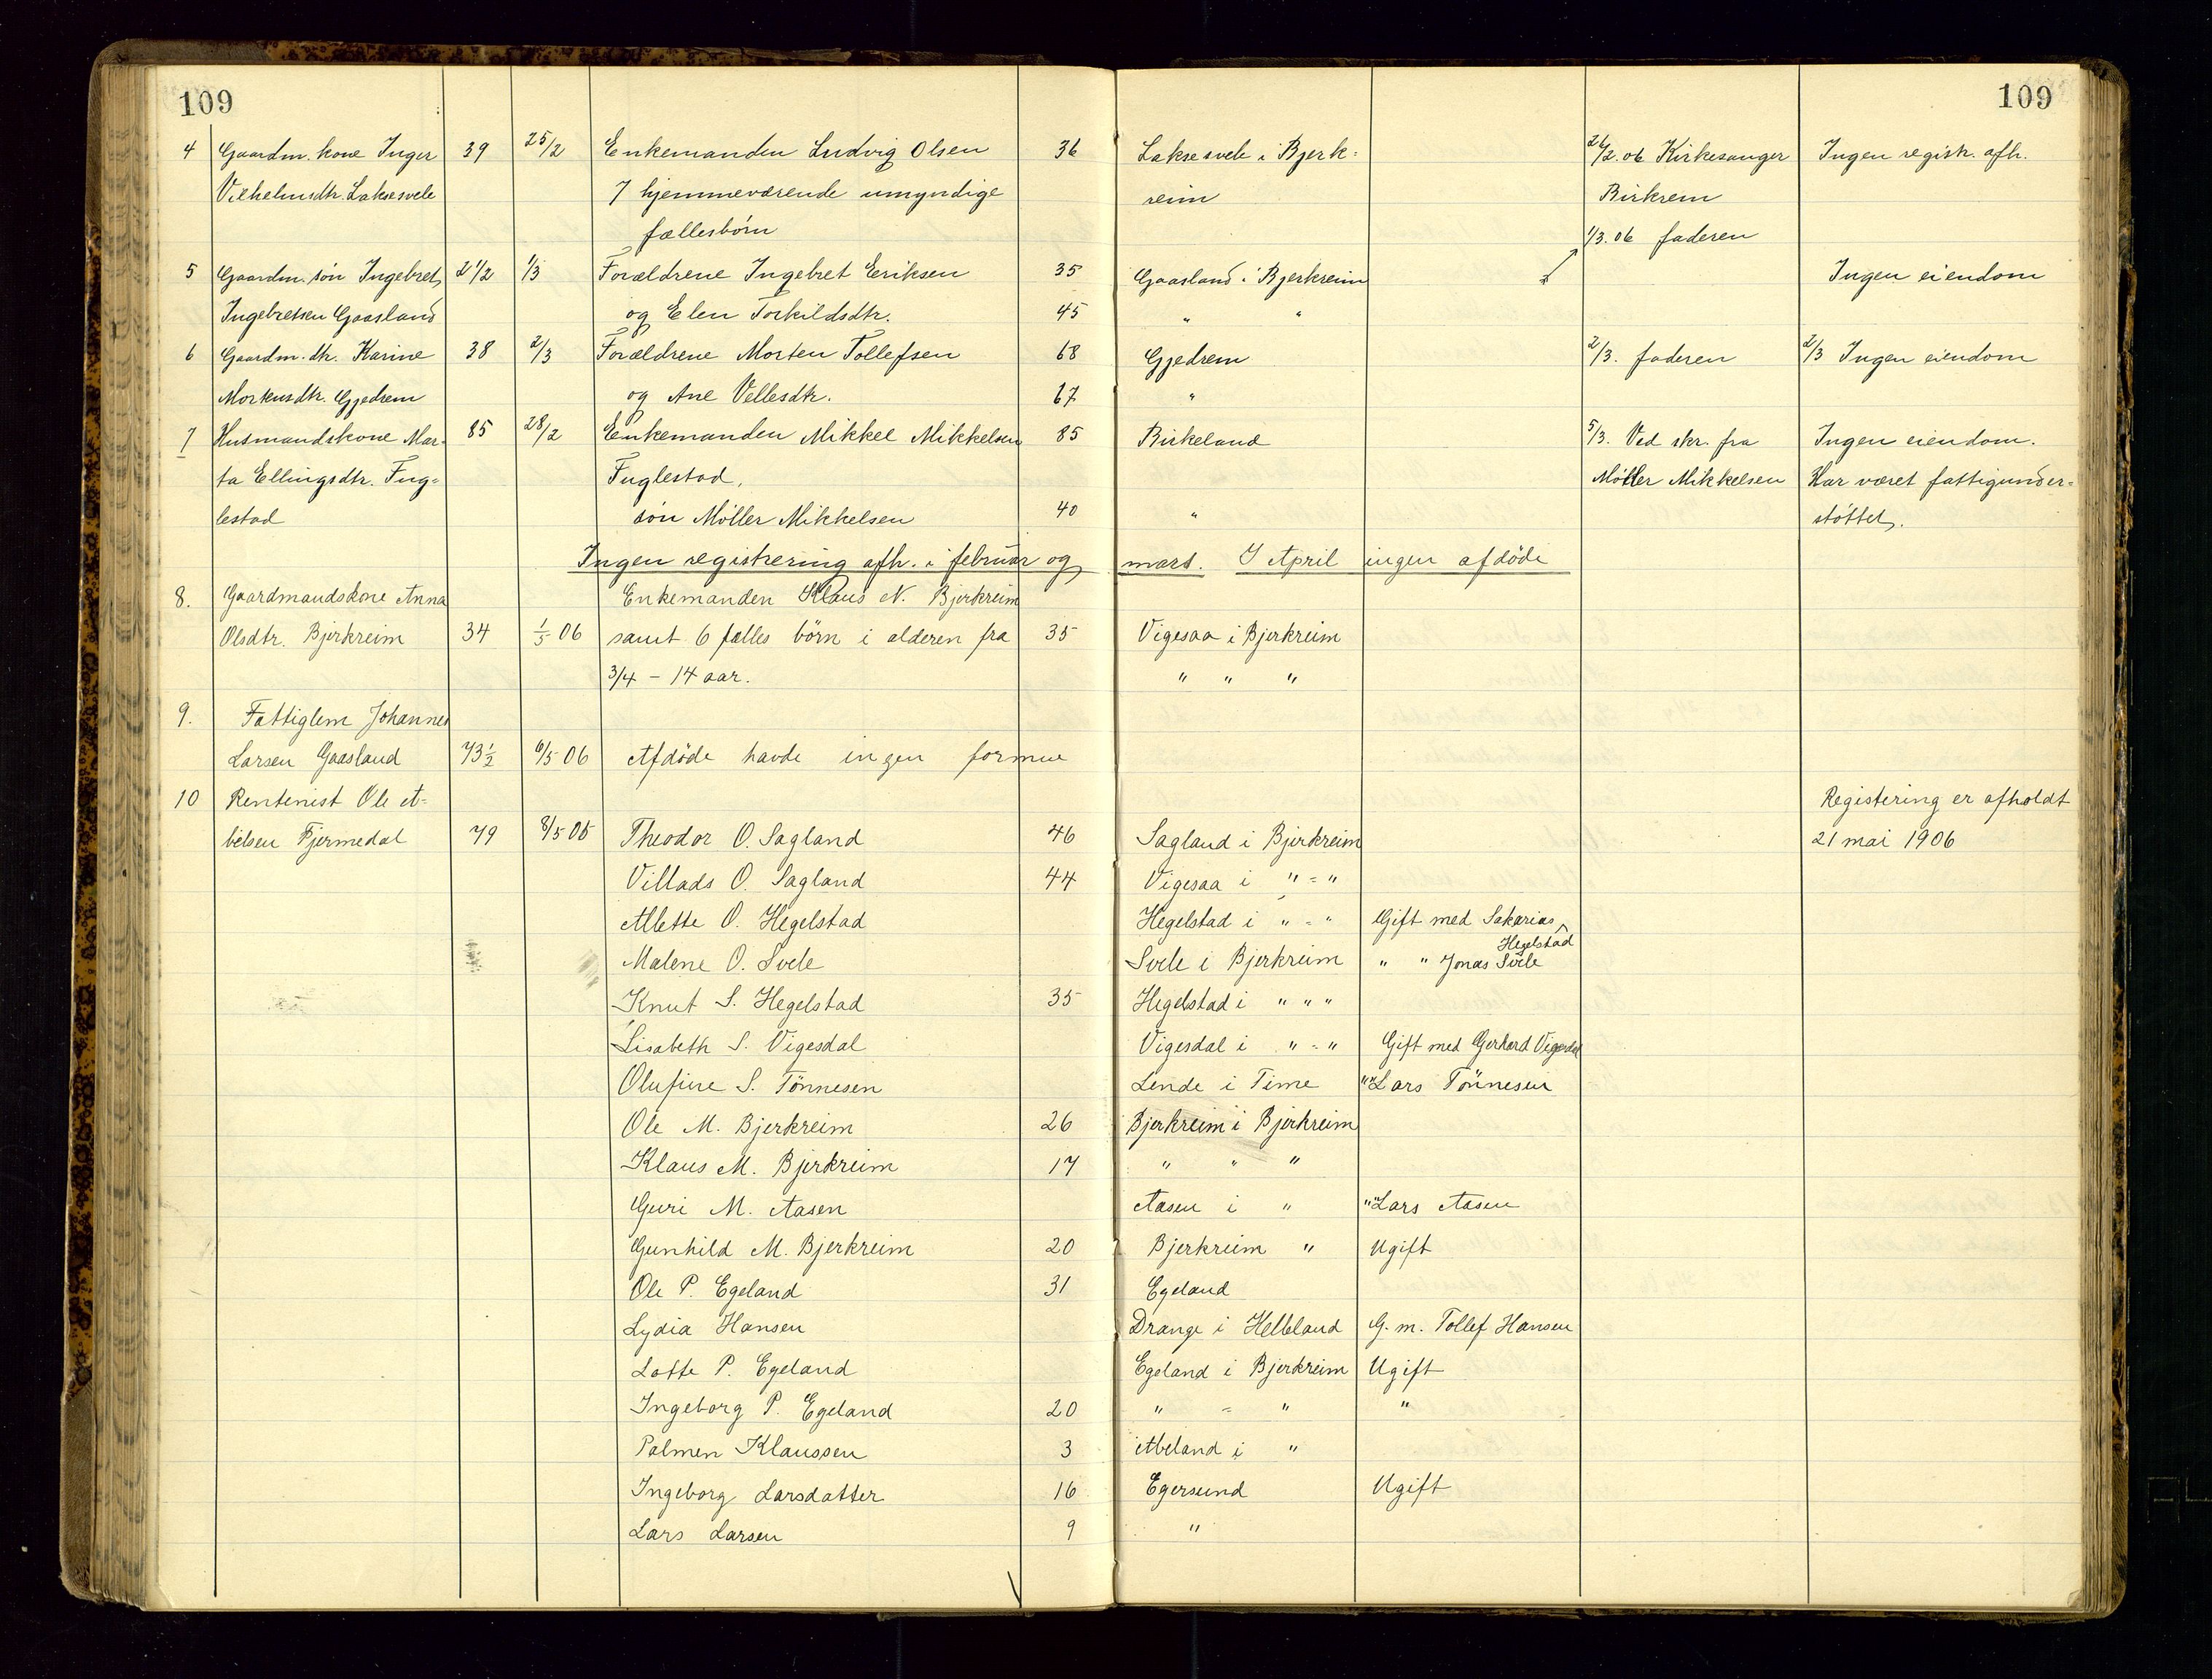 109 109
4 Gaardm. kone Inger 39 25/2 Enkemanden Ludvig Olsen 36 Laksesvele i Bjerk= 26/2.06 Kirkesanger Ingen registr. afh.
Vilhelmsdtr. Laksesvele 7 hjemmeværende umyndige reim Birkrem
fællesbörn 1/3.06 faderen
5 Gaardm. sön Ingebret 2 1/2 1/3 Forældrene Ingebret Eriksen 35 Gaasland i Bjerkreim Ingen eiendom
Ingebretsen Gaasland og Elen Torkildsdtr. 45 " "
6 Gaardm. dtr. Karine 38 2/3 Forældrene Morten Tollefsen 68 Gjedrem 2/3. faderen 2/3 Ingen eiendom
Mortensdtr. Gjedrem og Ane Vellesdtr. 67 "
7 Husmandskone Mar- 85 28/2 Enkemanden Mikkel Mikkelsen 85 Birkeland 5/3. Ved skr. fra Ingen eiendom.
ta Ellingsdtr. Fug= Fuglestad, Möller Mikkelsen Har været fattigunder=
lestad sön Möller Mikkelsen 40 " stöttet.
Ingen registrering afh. i februar og mars. I April ingen afdöde
8. Gaardmandskone Anna Enkemanden Klaus N. Bjerkreim
Olsdtr. Bjerkreim 34 1/5 06 samt 6 fælles börn i alderen fra 35 Vigesaa i Bjerkreim
3/4 - 14 aar. " " "
9. Fattiglem Johannes
Larsen Gaasland 73 1/2 6/5 06 Afdöde havde ingen formue
10 Rentenist Ole A= Registering er afholdt
belsen Fjermedal 79 8/5 06 Theodor O. Sagland 46 Sagland i Bjerkreim 21 mai 1906
Villads O. Sagland 44 Vigesaa i " = "
Alette O. Hegelstad Hegelstad i " = " Gift med Sakarias
Hegelstad
Malene O. Svele Svele i Bjerkreim " " Jonas Svele
Knut S. Hegelstad 35 Hegelstad i " " "
Lisabeth S. Vigesdal Vigesdal i " = " Gift med Gerhard Vigesdal
Olufine S. Tönnesen Lende i Time " " Lars Tönnesen
Ole M. Bjerkreim 26 Bjerkreim i Bjerkreim
Klaus M. Bjerkreim 17 " " "
Guri M. Aasen Aasen i " " " Lars Aasen
Gunhild M. Bjerkreim 20 Bjerkreim " Ugift
Ole P. Egeland 31 Egeland
Lydia Hansen Drange i Helleland G. m. Tollef Hansen
Lotte P. Egeland Egeland i Bjerkreim Ugift
Ingeborg P. Egeland 20 " = " "
Palmen Klaussen 3 Abeland i "
Ingeborg Larsdatter 16 Egersund Ugift
Lars Larsen 9 "